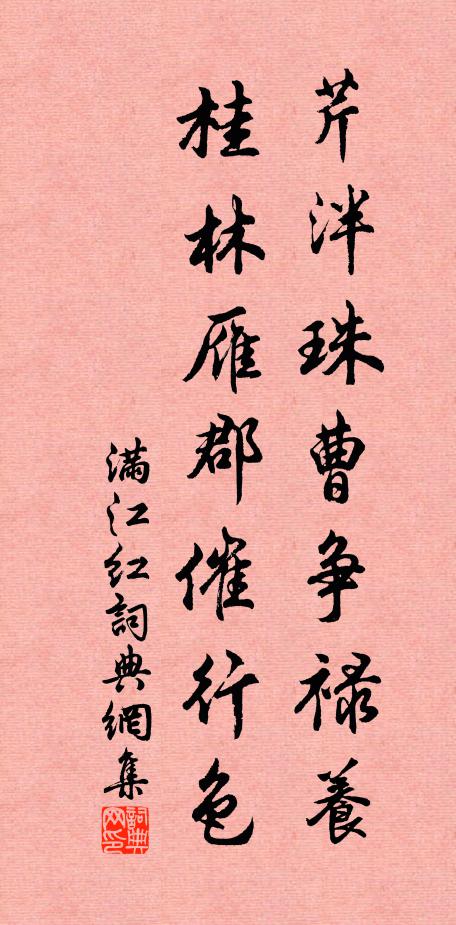 芹泮珠曹争禄養
桂林雁郡催行色
满江红詞典網集
詞典
网印